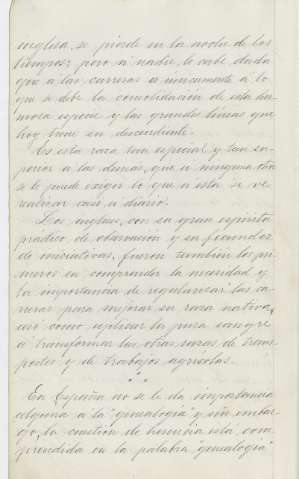 inglesa, se pierde en la noche de los
tiempos; pero á nadie le cabe duda
que á las carreras y únicamente á lo
que se debe la consolidación de esta her
mosa especie y las grandes lineas que
hoy tiene su descendiente.
Es esta raza tan especial y tan su
perior a las demás, que á ninguna otra
se le puede exigir lo que á esta se ve
realizar casi á diario.
Los ingleses, con su gran espíritu
práctico de observación y su fecundez
de iniciativas, fueron tambien los pri
meros en comprender la necesidad y
la importancia de regularizar las ca
rreras para mejorar su raza nativa,
así como utilizar la pura sangre
a transformar las otras razas de trans
portes y de trabajos agrícolas.
En España no se le da importancia
alguna á la "genealogía" y sin embar
go, la cuestión de herencia está com
prendida en la palabra "genealogía"